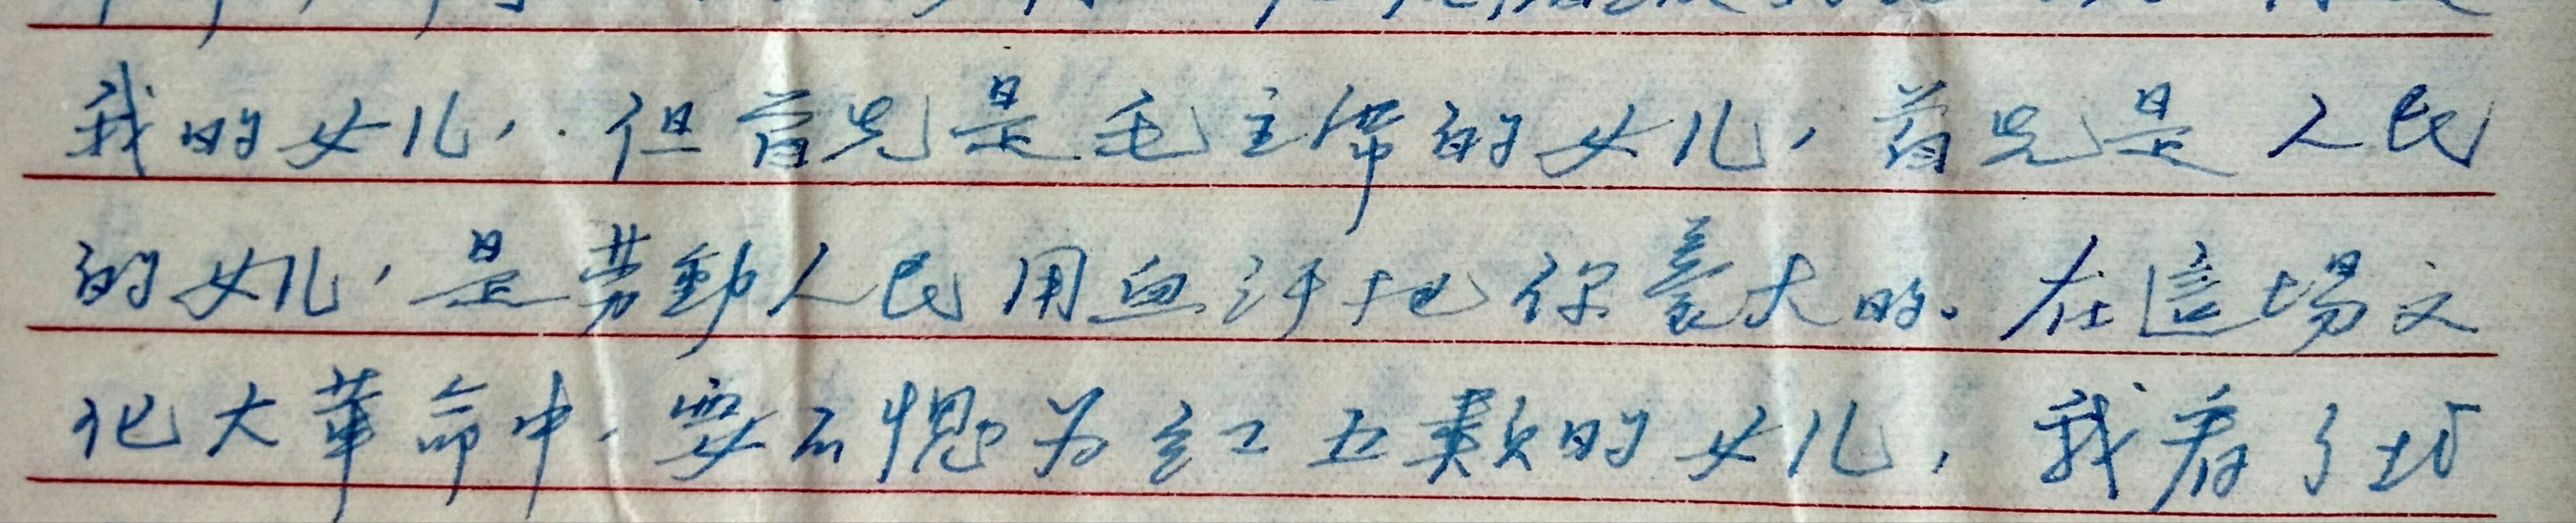 我的女儿，但首先是毛主席的女儿，首先是人民
的女儿，是劳動人民用血汗把你养大的。在這場文
化大革命中，要不愧为红五类的女儿，我看了好